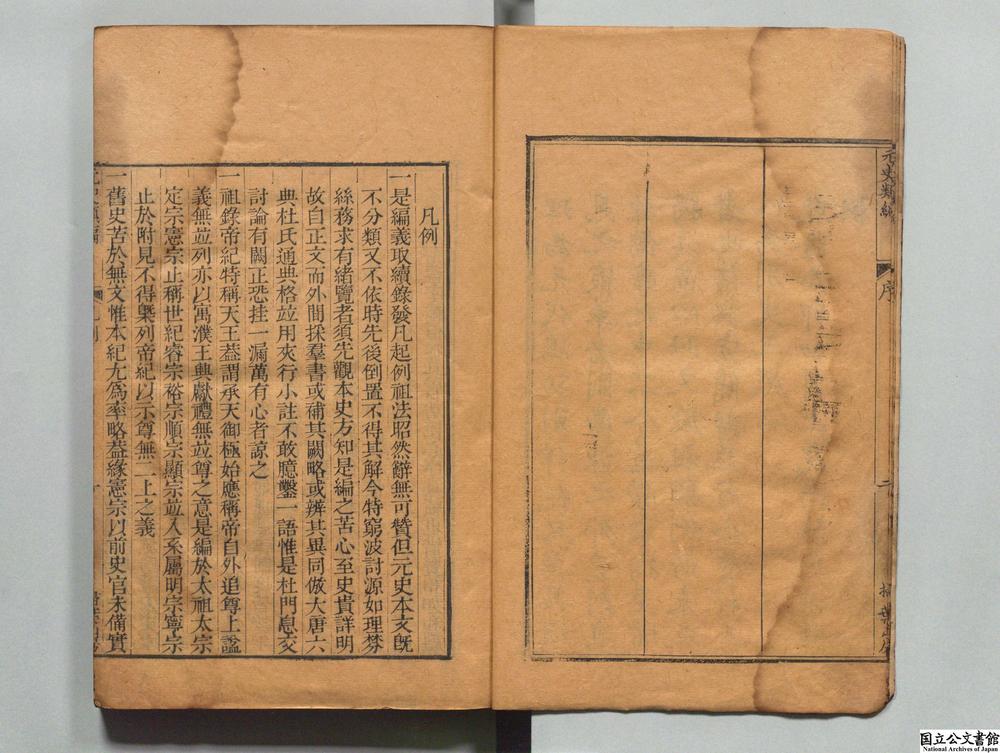 元史類編
序
二
凡例
一是編義取續錄發凡起例祖法昭然辭無可贊但元史本文旣
不分類又不依時先後倒置不得其解今特窮波討源如理棼
絲務求有緒覽者須先觀本史方知是編之苦心至史貴詳明
故自正文而外間採羣書或補其闕略或辨其異同倣大唐六
典杜氏通典格竝用夾行小註不敢臆鑿一語惟是杜門息交
討論有闕正恐挂一漏萬有心者諒之
一祖錄帝紀特稱天王葢謂承天御極始應稱帝自外追尊上諡
義無竝列亦以寓濮王典獻禮無竝尊之意是編於太祖太宗
定宗憲宗止稱世紀睿宗裕宗順宗顯宗竝入系屬明宗寧宗
止於附見不得槩列帝紀以示尊無二上之義
一舊史苦於無文惟本紀尢爲率略葢緣憲宗以前史官未備實
国立公文書館
National Archives of Japan